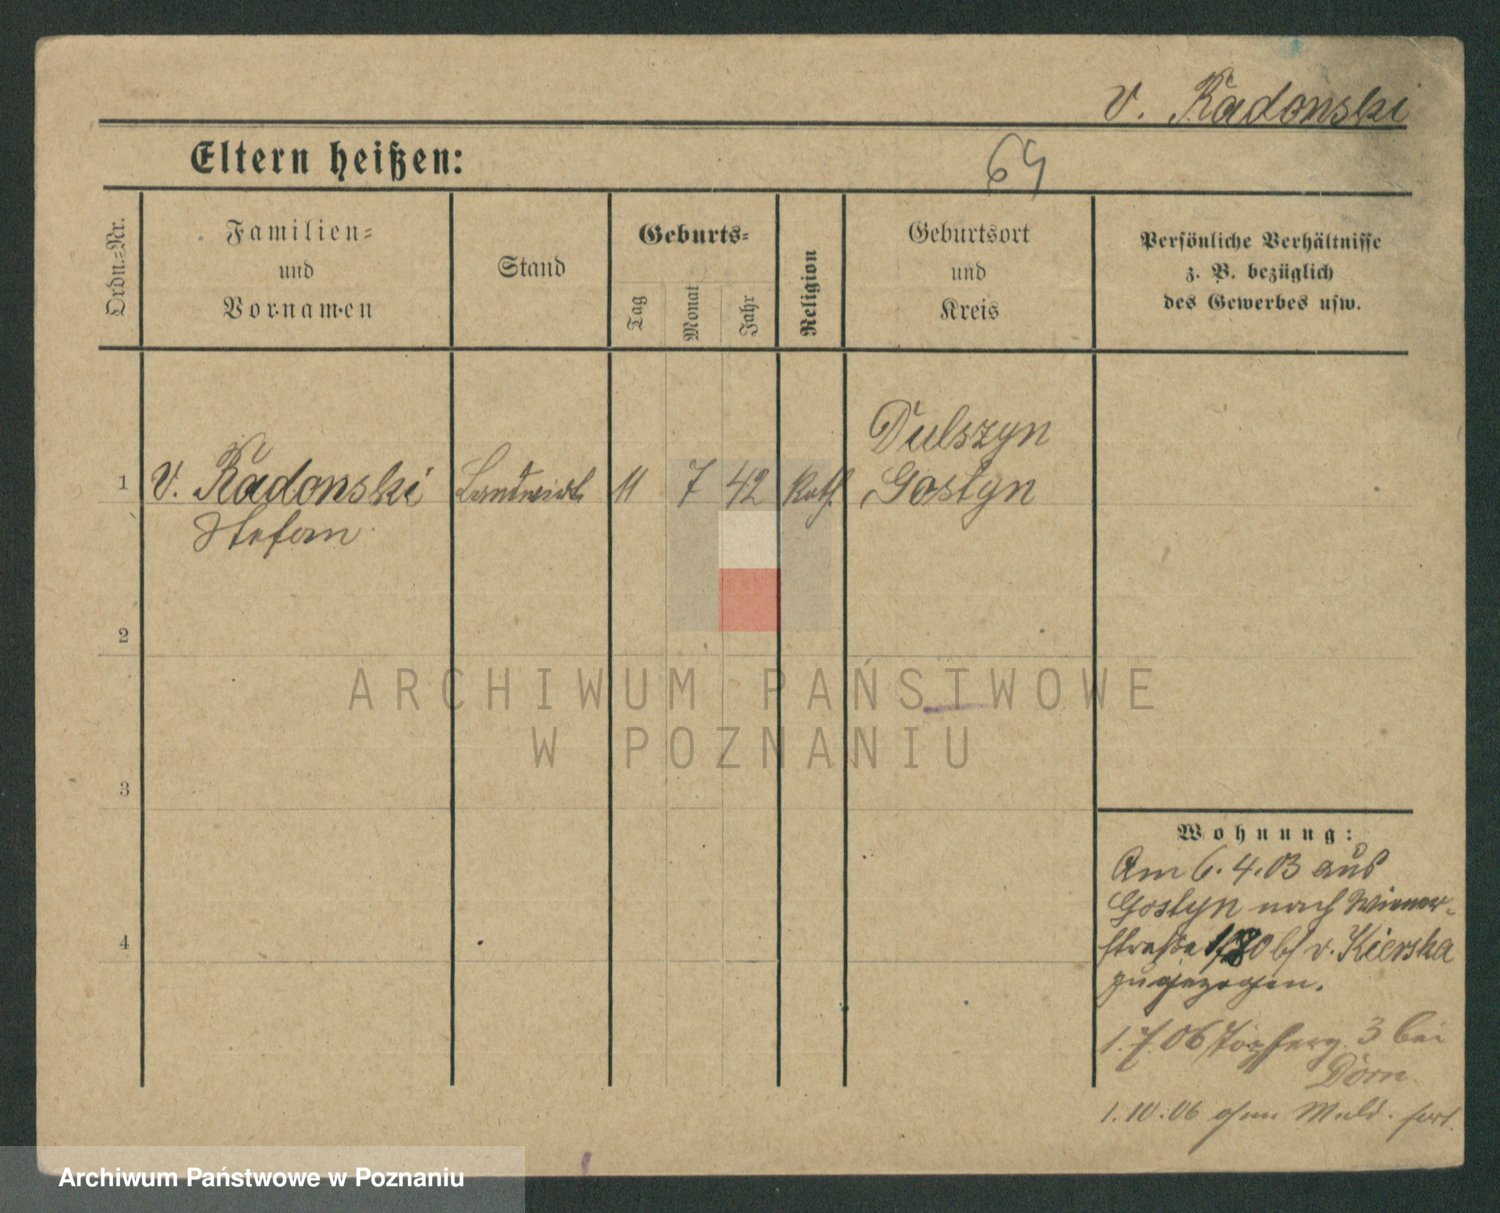 v. Radonski
Eltern heißen:
64
Ordn.-Nr.
Familien-
und
Vornamen
Stand
Geburts-
Tag
Monat
Jahr
Religion
Geburtsort
und
Kreis
Persönliche Verhältnisse
z. B. bezüglich
des Gewerbes usw.
1
v. Radonski
Stefan
Landwirt
11
7
42
Kath.
Dulszyn
Gostyn
2
3
4
ARCHIWUM PAŃSTWOWE
W POZNANIU
Wohnung:
Am 6.4.03 aus
Gostyn nach Wiener-
straße b/ v. Kierska
zugezogen.
1.7.06 3 bei
Dorn
1.10.06 ohne Meld. fort.
Archiwum Państwowe w Poznaniu